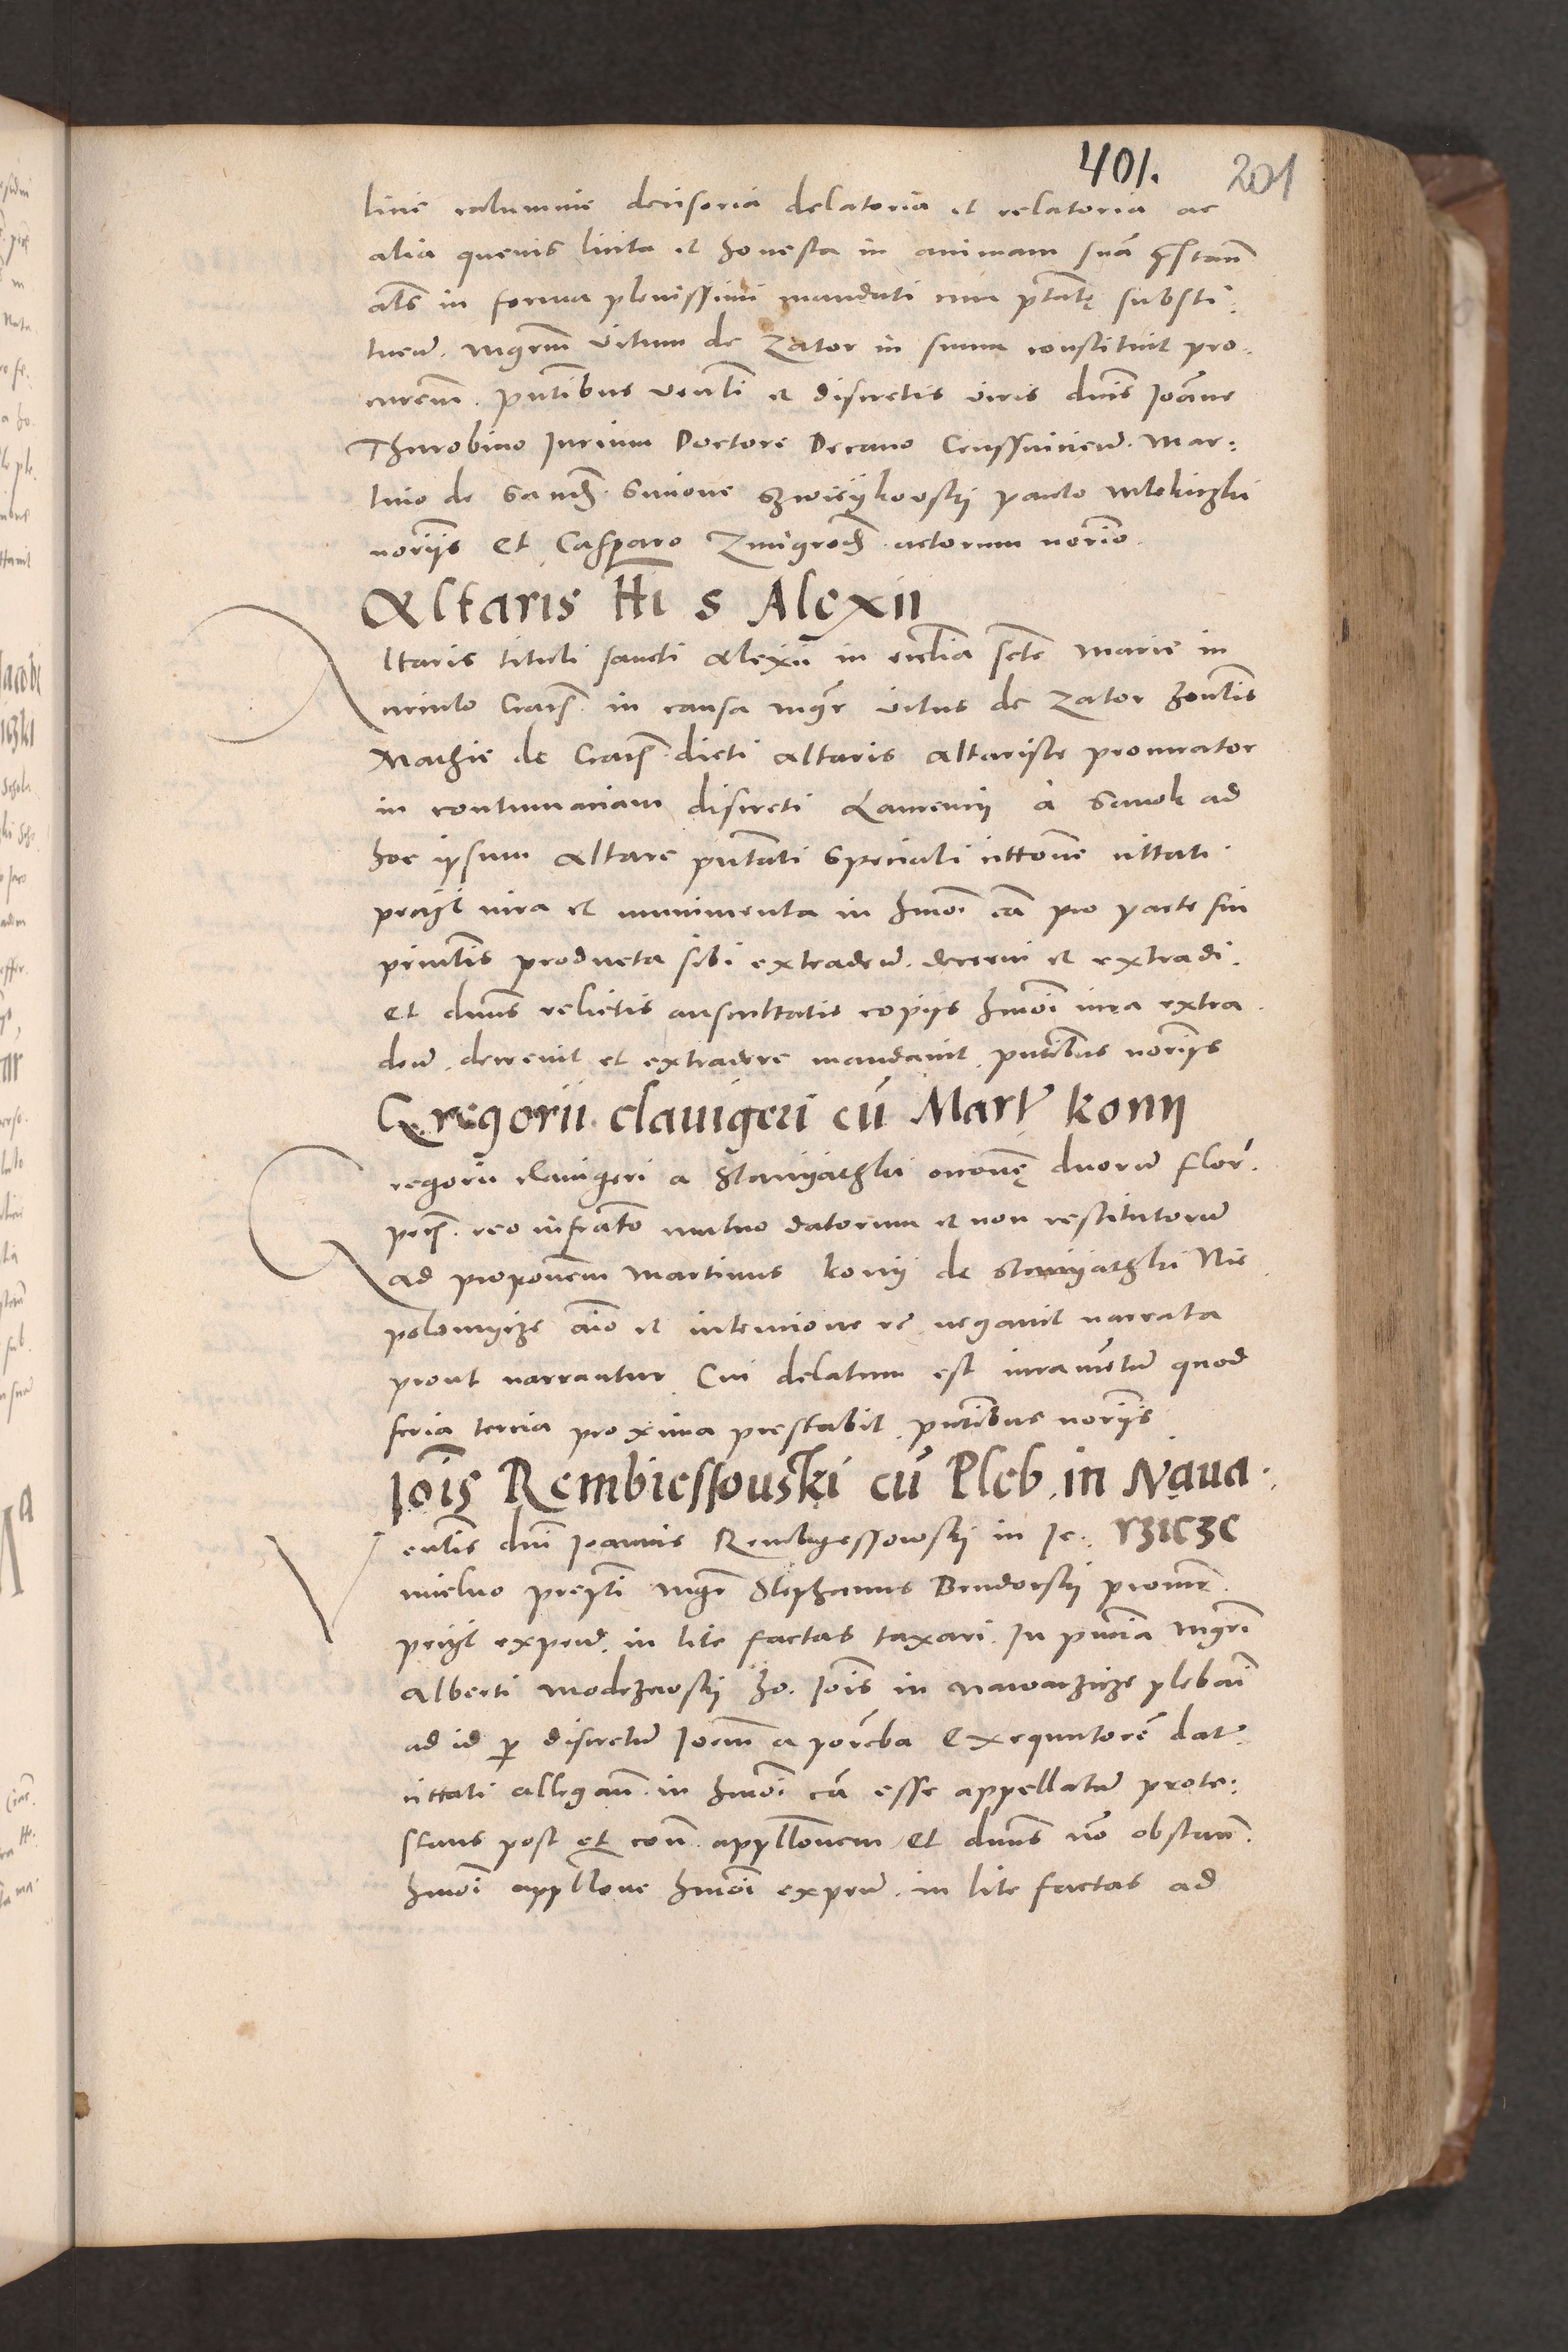 401. 201
line calumnie decisoria delatoria et relatoria ac
alia quevis licita et honesta in animam suā p̄stañ
als in forma plenissimi mandati cum p̄tātę substi:
tueñ. mgrm̄ Vitum de Zator in suum constituit pro:
curem̄. p̄ntibus venli et discretis viris dnis Joāne
Thurobino Jurium Doctore Decano Censsuineñ. Mar:
tino de Sandʒ. Simone Szwiczykowskij paulo mlekiczki
norijs Et Casparo Zmigrodʒ. actorum norio.
Altaris tti s Alexii
Altaris tituli sancti Alexii in ecclia scte Marie in
circulo Cracʒ. in causa mgr Vitus de Zator honlis
Mathie de Cracʒ. dicti altaris altariste procurator
in contumaciam discreti Laurencij a Sanok ad
hoc ipsum altare pntati speciali cittone cittati
petijt iura et munimenta in hmōi cā pro parte sui
principlis producta sibi extradeñ. decerni et extradi.
Et dnus relictis auscultatis copijs hmōi iura extra
deñ. decrevit et extradere mandavit. pntibus norijs
Gregorii clavigeri cū Mart̄ konij
Gregorii clavigeri a Staniyathki occōnę duorū flor̄.
pecʒ. reo infrato mutuo datorum et non restitutorū
ad propōnem Martinus konij de Staniyathki Nie
polomycze aīo et intencione re negavit narrata
prout narrantur Cui delatum est iuramentū quod
feria tercia proxima prestabit. pntibus norijs
Joīs Rembiessouski cū Pleb. in Naua:
Venlis dni Joannis Rembyessowskij in Je: rziczc
mielno prepti mgr Stephanus Brudorskij procur̄.
petijt expeñ. in lite factas taxari. In pncia mgri
Alberti modrzewskij ho. Jois in Nawarzicze plebani
ad id p discretū Joem̄ a poreba Exequutorē dat̄
cittati allegañ. in hmōi cā esse appellatū prote:
stans post et con. appllonem Et dnus nō obstañ.
hmōi appllone hmōi expeñ. in lite factas ad